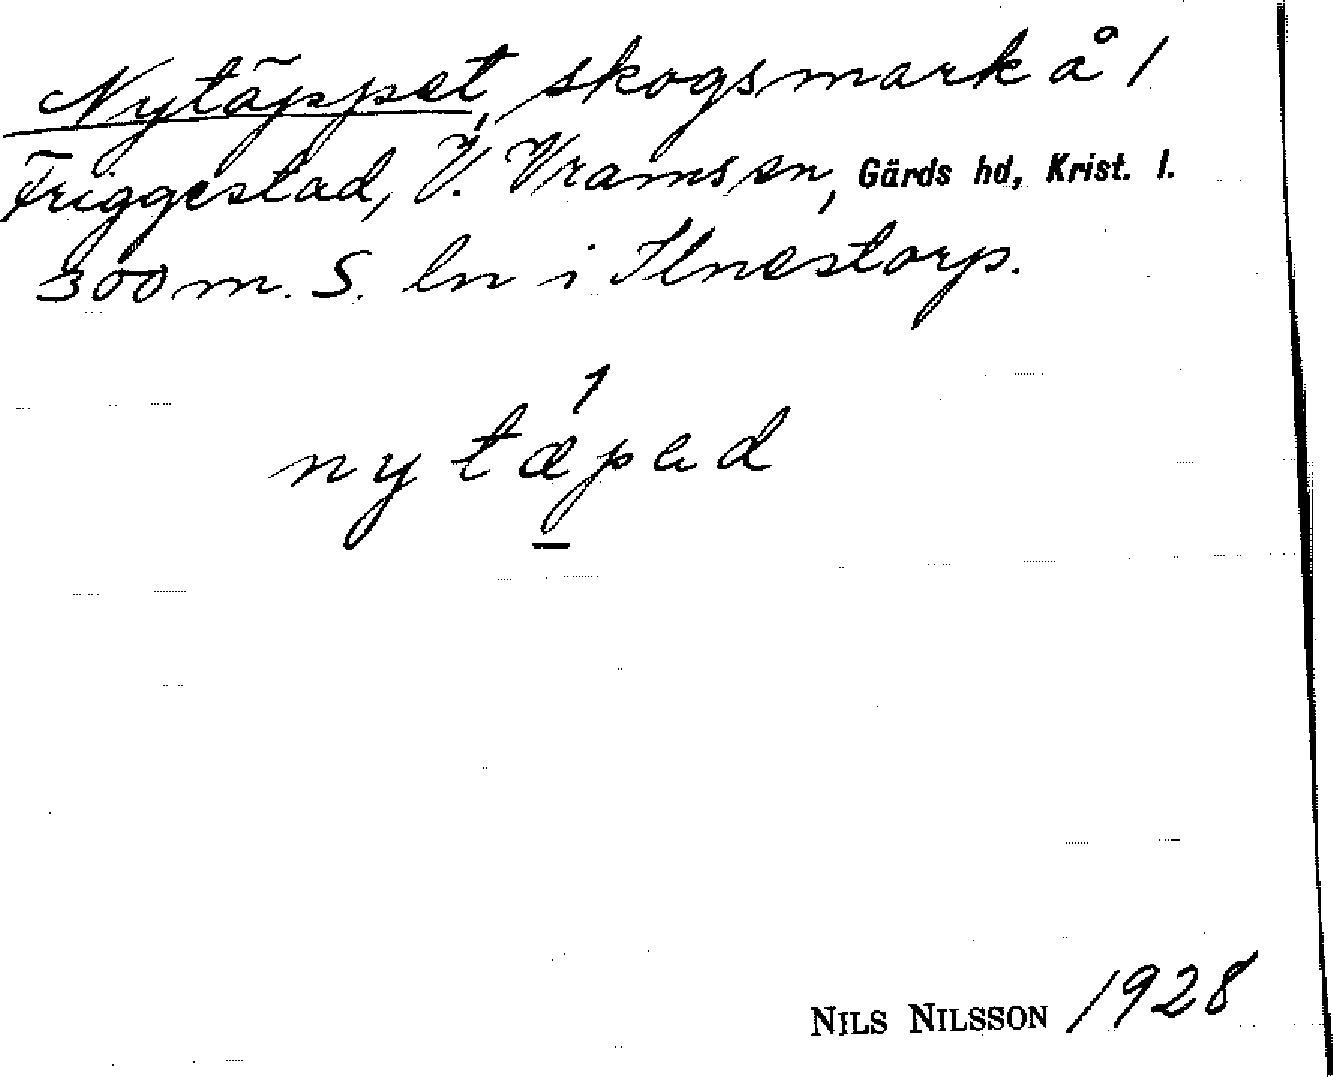 Nytäppet, skogsmark å 1
Friggestad, V. Vrams sn, Gärds hd, Krist. l.
300 m. S. ln i Ilnestorp.
nytæpad
NILS NILSSON 1928